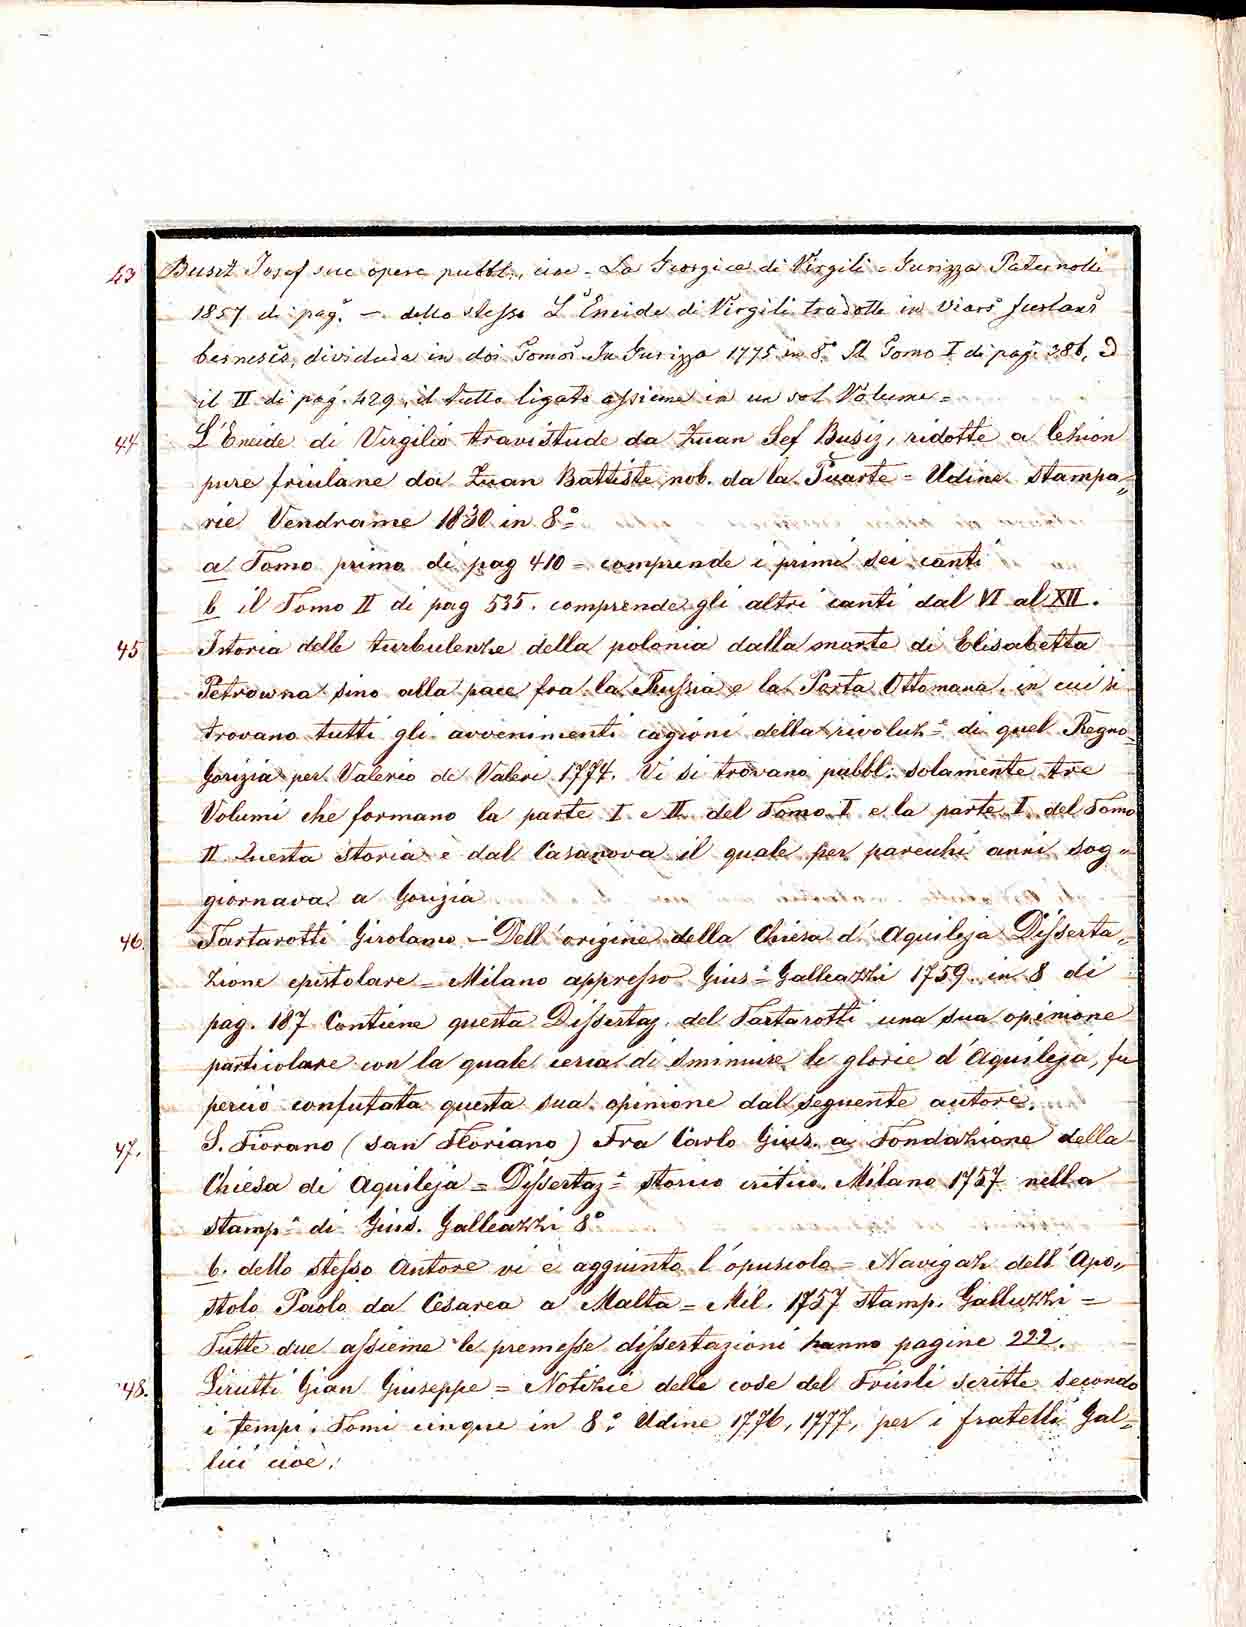 43 Busiz Josef sue opere pubbl., cioe = La Georgica di Virgili = Gurizza Paternolli
1857 di pag. — dello stesso L'Eneide di Virgili tradotte in viars furlans
bernescs, dividude in doi Tomos In Gurizza 1775 in 8.° Il Tomo I di pag. 386, ed
il II di pag. 429, il tutto ligato assieme in un sol Volume =
44 L'Eneide di Virgilio travistude da Zuan Sef Busiz, ridotte a lezion
pure friulane da Zuan Battiste nob. da la Puarte = Udine stampa„
rie Vendrame 1830 in 8°=
a Tomo primo di pag 410 = comprende i primi sei canti
b il Tomo II di pag 535. comprende gli altri canti dal VI al XII.
45 Istoria delle turbulenze della polonia dalla morte di Elisabetta
Petrowna sino alla pace fra la Russia e la Porta Ottomana, in cui si
trovano tutti gli avvenimenti cagioni della rivoluz.e di quel Regno=
Gorizia per Valerio de Valeri 1774. Vi si trovano pubbl: solamente tre
Volumi che formano la parte I e II del Tomo I e la parte I del Tomo
II Questa storia è dal Casanova il quale per parecchi anni sog„
giornava a Gorizia
46. Tartarotti Girolamo — Dell'origine della Chiesa d'Aquileja Disserta„
zione epistolare = Milano appresso Gius.e Galleazzi 1759. in 8 di
pag. 187 Contiene questa Dissertaz. del Tartarotti una sua opinione
particolare con la quale cerca di sminuire le glorie d'Aquileja, fu
perciò confutata questa sua opinione dal seguente autore.
47. S. Fiorano (san Floriano) Fra Carlo Gius. a Fondazione della
Chiesa di Aquileja = Dissertaz.e storico critico. Milano 1757 nella
stamp.a di Gius. Galleazzi 8°
b. dello stesso Autore vi è aggiunto l'opuscolo = Navigaz dell'Apo„
stolo Paolo da Cesarea a Malta = Mil. 1757 stamp. Galluzzi =
Tutte due assieme le premesse dissertazioni hanno pagine 222.
48. Lirutti Gian Giuseppe = Notizie delle cose del Friuli scritte secondo
i tempi. Tomi cinque in 8.° Udine 1776, 1777, per i fratelli Gal=
lici cioè: